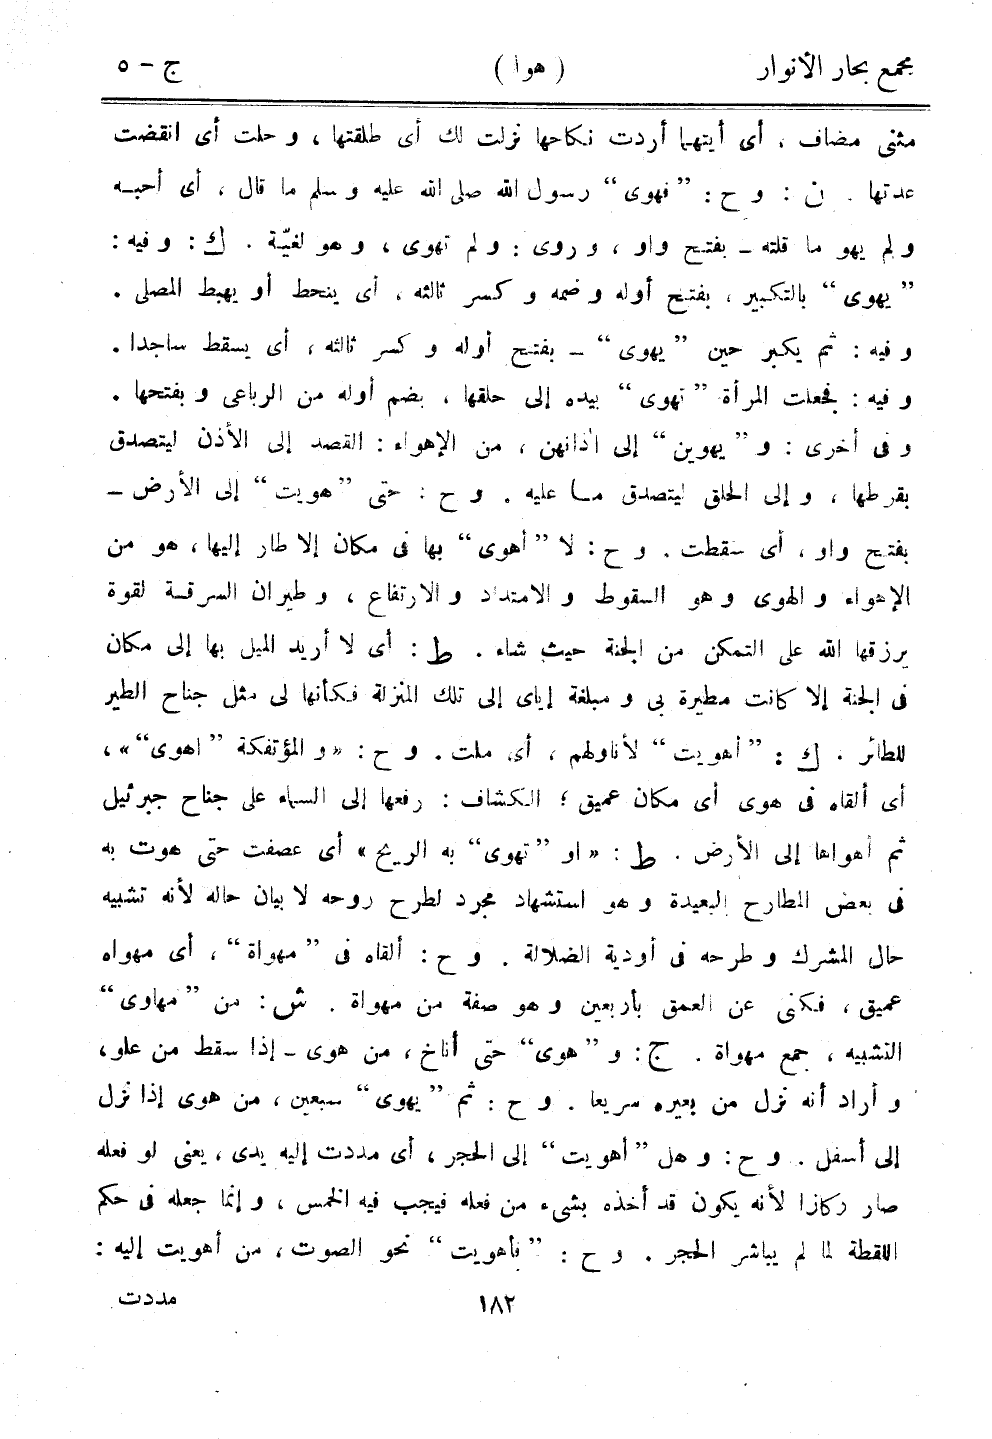 مجمع بحار الأنوار ( هوا ) ج – ٥
مثنى مضاف ، أى أيتهما أردت نكاحها نزلت لك أى طلقتها ، و حلت أى انقضت
عدتها . ن : و ح : ”فهوى“ رسول الله صلى الله عليه و سلم ما قال ، أى أحبه
و لم يهو ما قلته – بفتح واو ، و روى : و لم تهوى ، و هو لغيّة . ك : و فيه :
”يهوى“ بالتكبير ، بفتح أوله و ضمه و كسر ثالثه ، أى ينحط أو يهبط المصلى .
و فيه : ثم يكبر حين ”يهوى“ – بفتح أوله و كسر ثالثه ، أى يسقط ساجدا .
و فيه : فجعلت المرأة ”تهوى“ بيده إلى حلقها ، بضم أوله من الرباعى و بفتحها .
و فى أخرى : و ”يهوين“ إلى اٰذانهن ، من الإهواء : القصد إلى الأذن ليتصدق
بقرطها ، و إلى الحلق ليتصدق ما عليه . و ح : حتى ”هويت“ إلى الأرض –
بفتح واو ، أى سقطت . و ح : لا ”أهوى“ بها فى مكان إلا طار إليها ، هو من
الإهواء و الهوى و هو السقوط و الامتداد و الارتفاع ، و طيران السرقة لقوة
يرزقها الله على التمكن من الجنة حيث شاء . ط : أى لا أريد الميل بها إلى مكان
فى الجنة إلا كانت مطيرة بى و مبلغة إياى إلى تلك المنزلة فكأنها لى مثل جناح الطير
للطائر . ك : ”أهويت“ لأناولهم ، أى ملت . و ح : «و المؤتفكة ”اهوى“» ،
أى ألقاه فى هوى أى مكان عميق ؛ الكشاف : رفعها إلى السماء على جناح جبرئيل
ثم أهواها إلى الأرض . ط : «او ”تهوى“ به الريح» أى عصفت حتى هوت به
فى بعض المطارح البعيدة و هو استشهاد مجرد لطرح روحه لا بيان حاله لأنه تشبيه
حال المشرك و طرحه فى أودية الضلالة . و ح : ألقاه فى ”مهواة“ ، أى مهواه
عميق ، فكنى عن العمق بأربعين و هو صفة من مهواة . ش : من ”مهاوى“
التشبيه ، جمع مهواة . ج : و ”هوى“ حتى أناخ ، من هوى – إذا سقط من علو ،
و أراد أنه نزل من بعيره سريعا . و ح : ثم ”يهوى“ سبعين ، من هوى إذا نزل
إلى أسفل . و ح : و هل ”أهويت“ إلى الحجر ، أى مددت إليه يدى ، يعنى لو فعله
صار ركازا لأنه يكون قد أخذه بشىء من فعله فيجب فيه الخمس ، و إنما جعله فى حكم
اللقطة لما لم يباشر الحجر . و ح : ”فأهويت“ نحو الصوت ، من أهويت إليه :
١٨٢ مددت